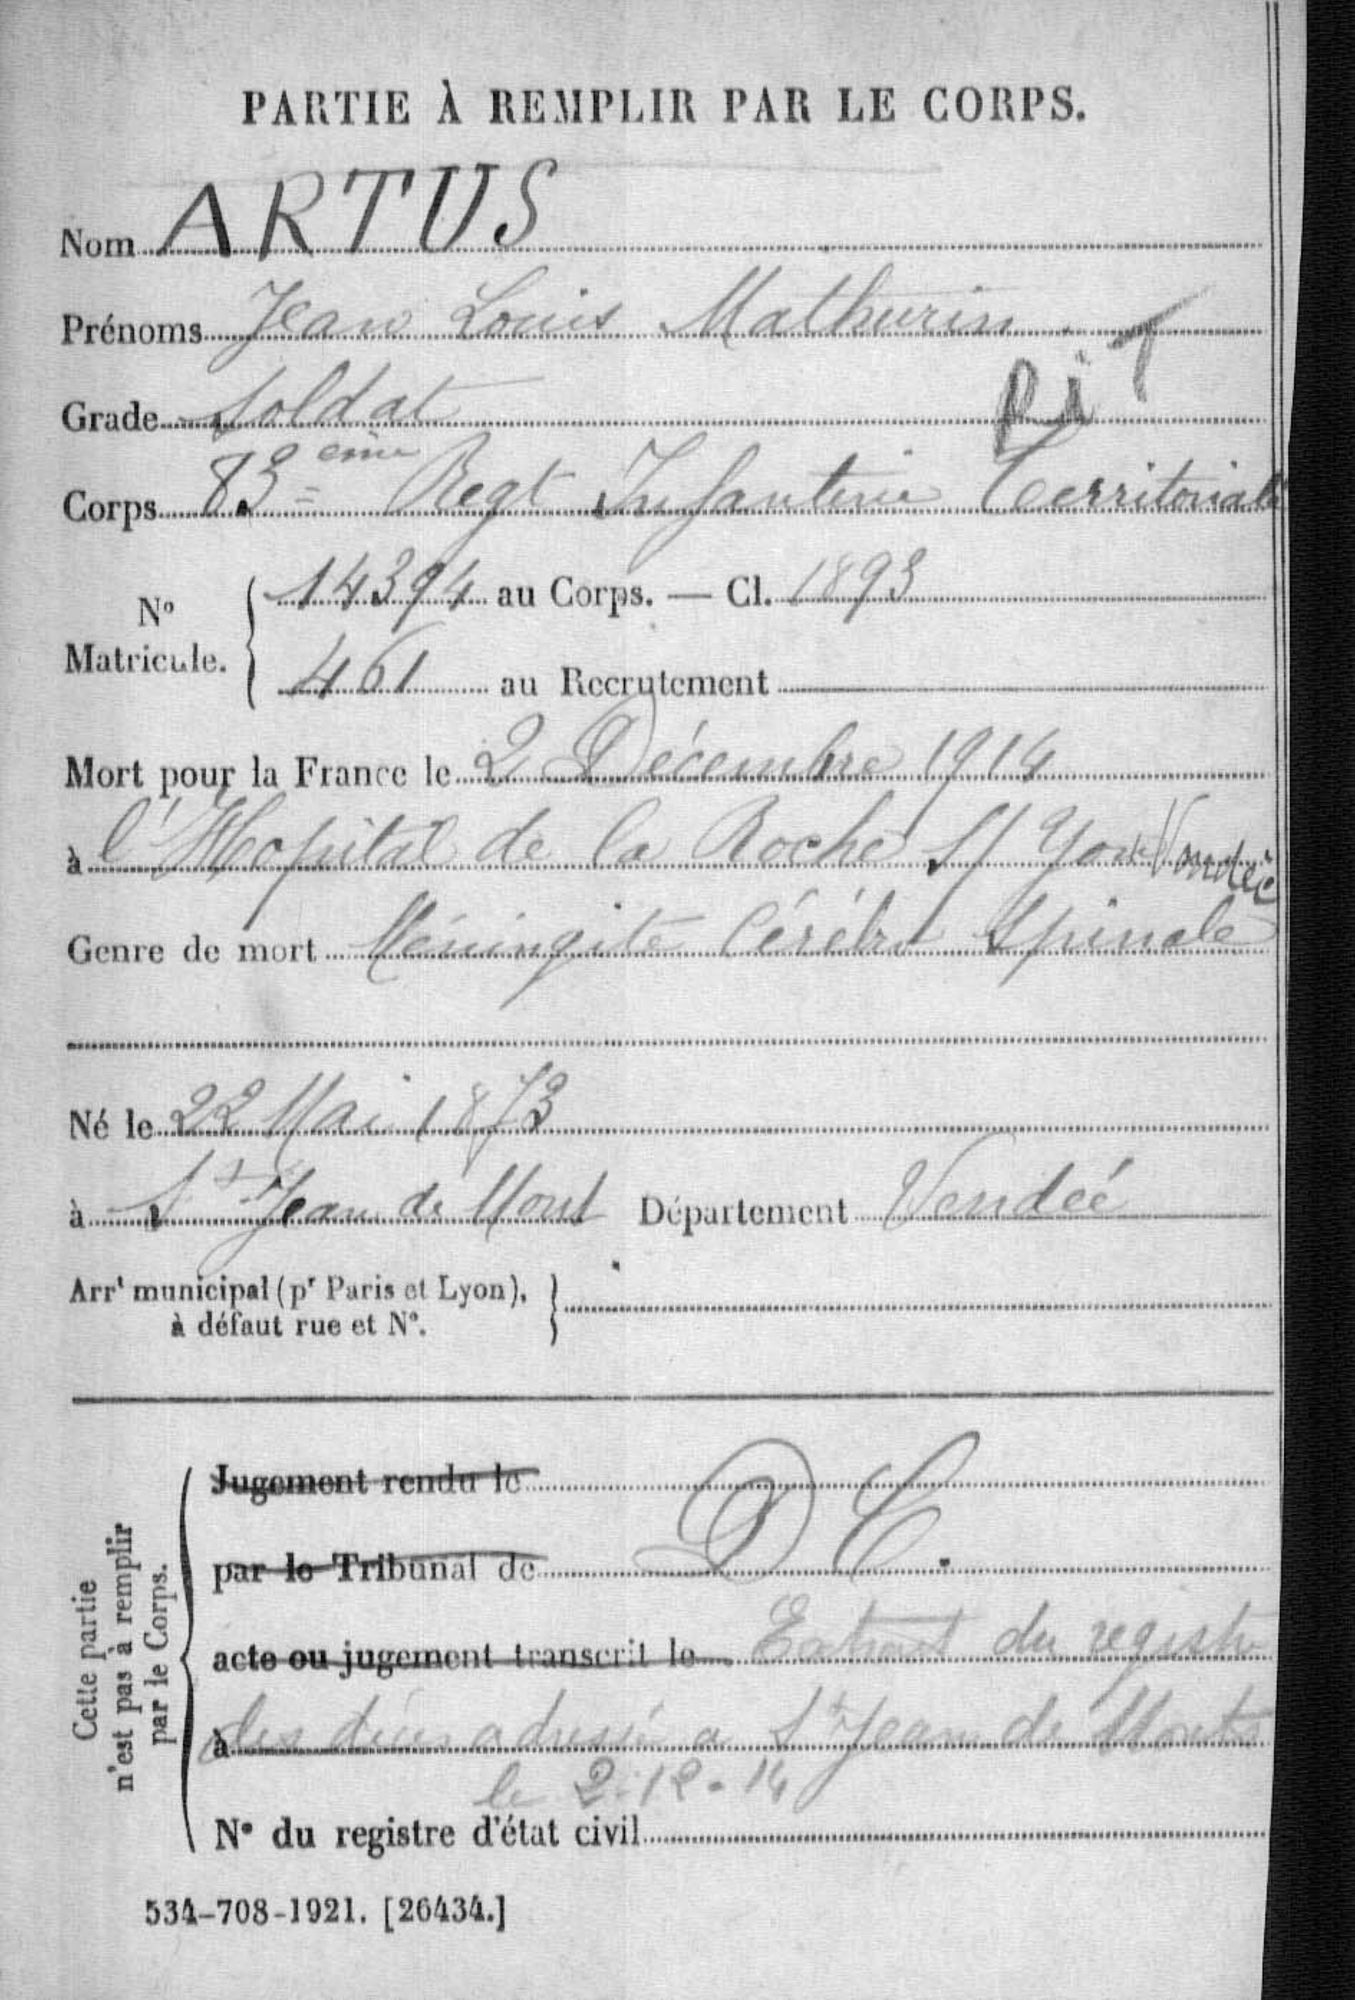 PARTIE À REMPLIR PAR LE CORPS.
Nom ARTUS
Prénoms Jean Louis Mathurin
RiT
Grade Soldat
Corps 83ème Regt Infanterie Territoriale
N° Matricule.
14394 au Corps. — Cl. 1893
461 au Recrutement
Mort pour la France le 2 Décembre 1914
à l'Hopital de la Roche s/ Yon Vendée
Genre de mort Méningite Cérébro Spinale
Né le 22 Mai 1873
à St Jean de Mont Département Vendée
Arrt municipal (pr Paris et Lyon),
à défaut rue et N°.
Cette partie
n'est pas à remplir
par le Corps.
Jugement rendu le
par le Tribunal de
D C.
acte ou jugement transcrit le Extrait du registre
à des décès adressé a St Jean de Monts
le 2-12-14
N° du registre d'état civil
534-708-1921. [26434.]